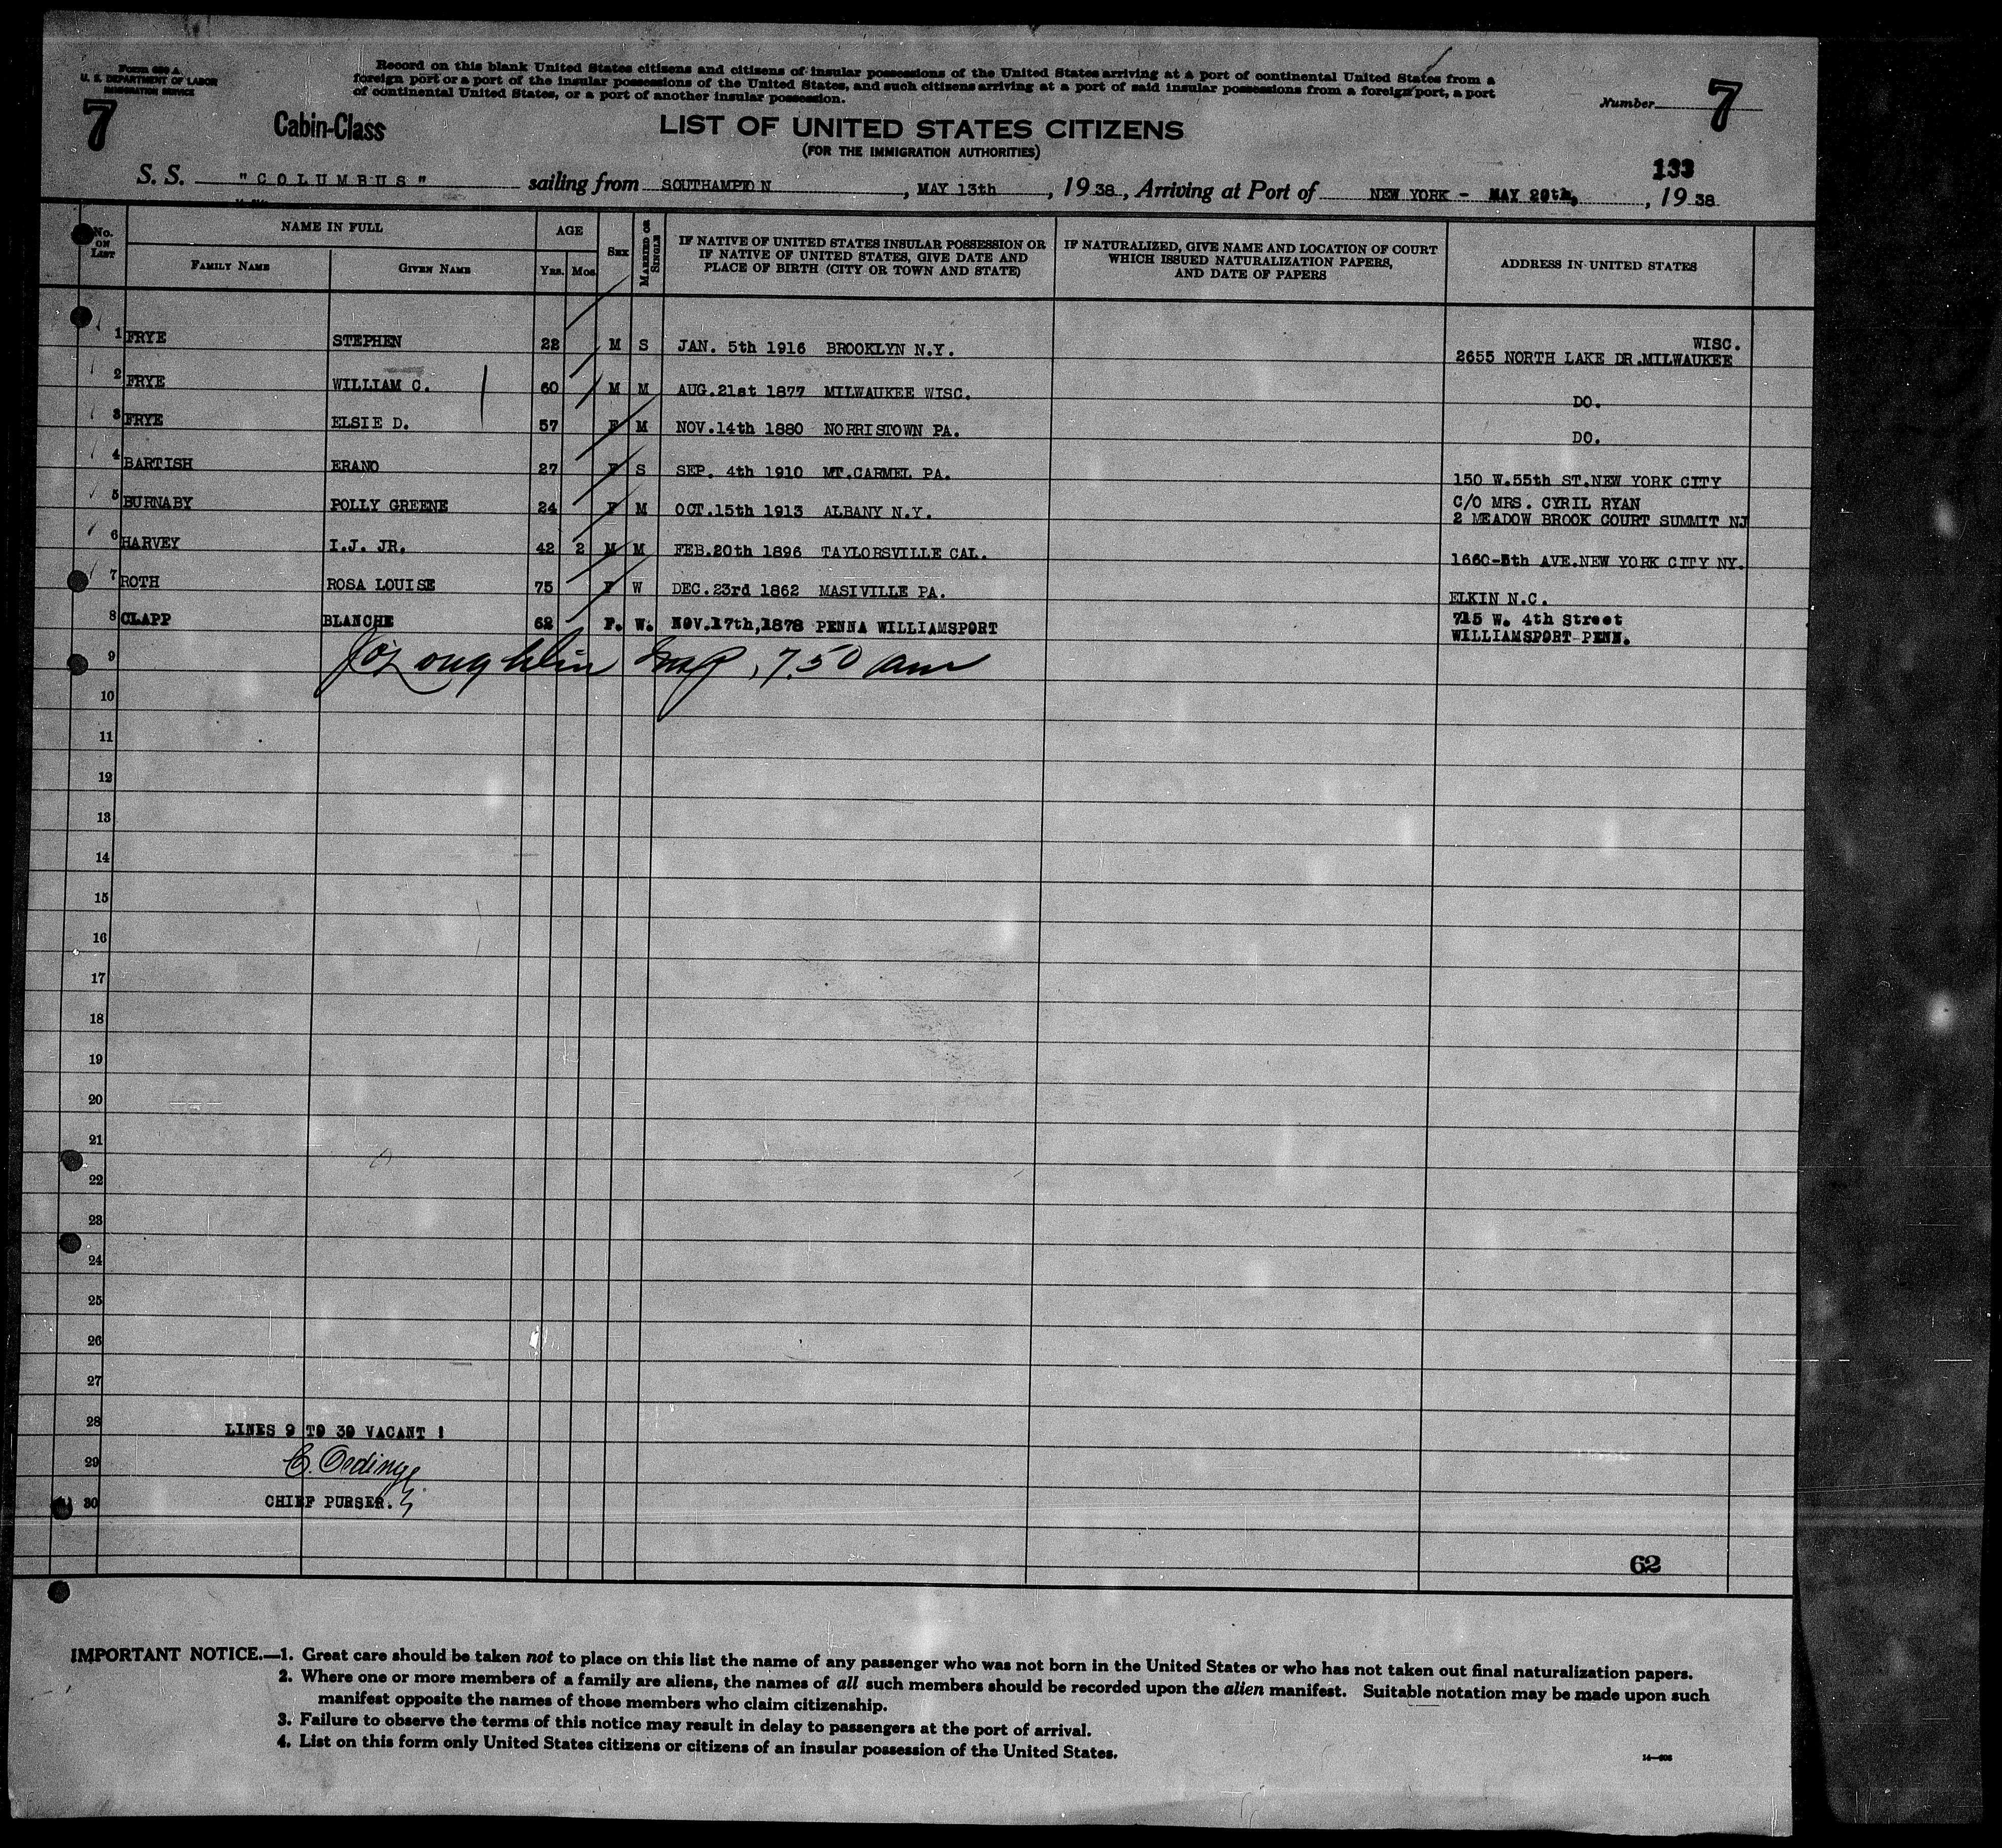 Form 630 A
U. S. DEPARTMENT OF LABOR
IMMIGRATION SERVICE
Record on this blank United States citizens and citizens of insular possessions of the United States arriving at a port of continental United States from a
foreign port or a port of the insular possessions of the United States, and such citizens arriving at a port of said insular possessions from a foreign port, a port
of continental United States, or a port of another insular possession.
7 Cabin-Class LIST OF UNITED STATES CITIZENS Number 7
(FOR THE IMMIGRATION AUTHORITIES)
133
S. S. "COLUMBUS" sailing from SOUTHAMPTON, MAY 13th, 1938, Arriving at Port of NEW YORK - MAY 20th, 1938
No. ON LIST NAME IN FULL FAMILY NAME GIVEN NAME AGE YRS. MOS. SEX MARRIED OR SINGLE IF NATIVE OF UNITED STATES INSULAR POSSESSION OR IF NATIVE OF UNITED STATES, GIVE DATE AND PLACE OF BIRTH (CITY OR TOWN AND STATE) IF NATURALIZED, GIVE NAME AND LOCATION OF COURT WHICH ISSUED NATURALIZATION PAPERS, AND DATE OF PAPERS ADDRESS IN UNITED STATES
1 FRYE STEPHEN 22 M S JAN. 5th 1916 BROOKLYN N.Y. WISC.
2655 NORTH LAKE DR.MILWAUKEE
2 FRYE WILLIAM C. 60 M M AUG.21st 1877 MILWAUKEE WISC. DO.
3 FRYE ELSIE D. 57 F M NOV.14th 1880 NORRISTOWN PA. DO.
4 BARTISH ERANO 27 F S SEP. 4th 1910 MT.CARMEL PA. 150 W.55th ST.NEW YORK CITY
5 BURNABY POLLY GREENE 24 F M OCT.15th 1913 ALBANY N.Y. C/O MRS. CYRIL RYAN
2 MEADOW BROOK COURT SUMMIT NJ
6 HARVEY I.J. JR. 42 2 M M FEB.20th 1896 TAYLORSVILLE CAL. 1660-5th AVE.NEW YORK CITY NY.
7 ROTH ROSA LOUISE 75 F W DEC.23rd 1862 MASIVILLE PA. ELKIN N.C.
8 CLAPP BLANCHE 62 F. W. NOV.17th,1878 PENNA WILLIAMSPORT 715 W. 4th Street
WILLIAMSPORT-PENN.
9 O'Loughlin Insp, 7.50 am
10
11
12
13
14
15
16
17
18
19
20
21
22
23
24
25
26
27
28 LINES 9 TO 30 VACANT !
29
30 CHIEF PURSER.
62
IMPORTANT NOTICE.—1. Great care should be taken not to place on this list the name of any passenger who was not born in the United States or who has not taken out final naturalization papers.
2. Where one or more members of a family are aliens, the names of all such members should be recorded upon the alien manifest. Suitable notation may be made upon such
manifest opposite the names of those members who claim citizenship.
3. Failure to observe the terms of this notice may result in delay to passengers at the port of arrival.
4. List on this form only United States citizens or citizens of an insular possession of the United States.